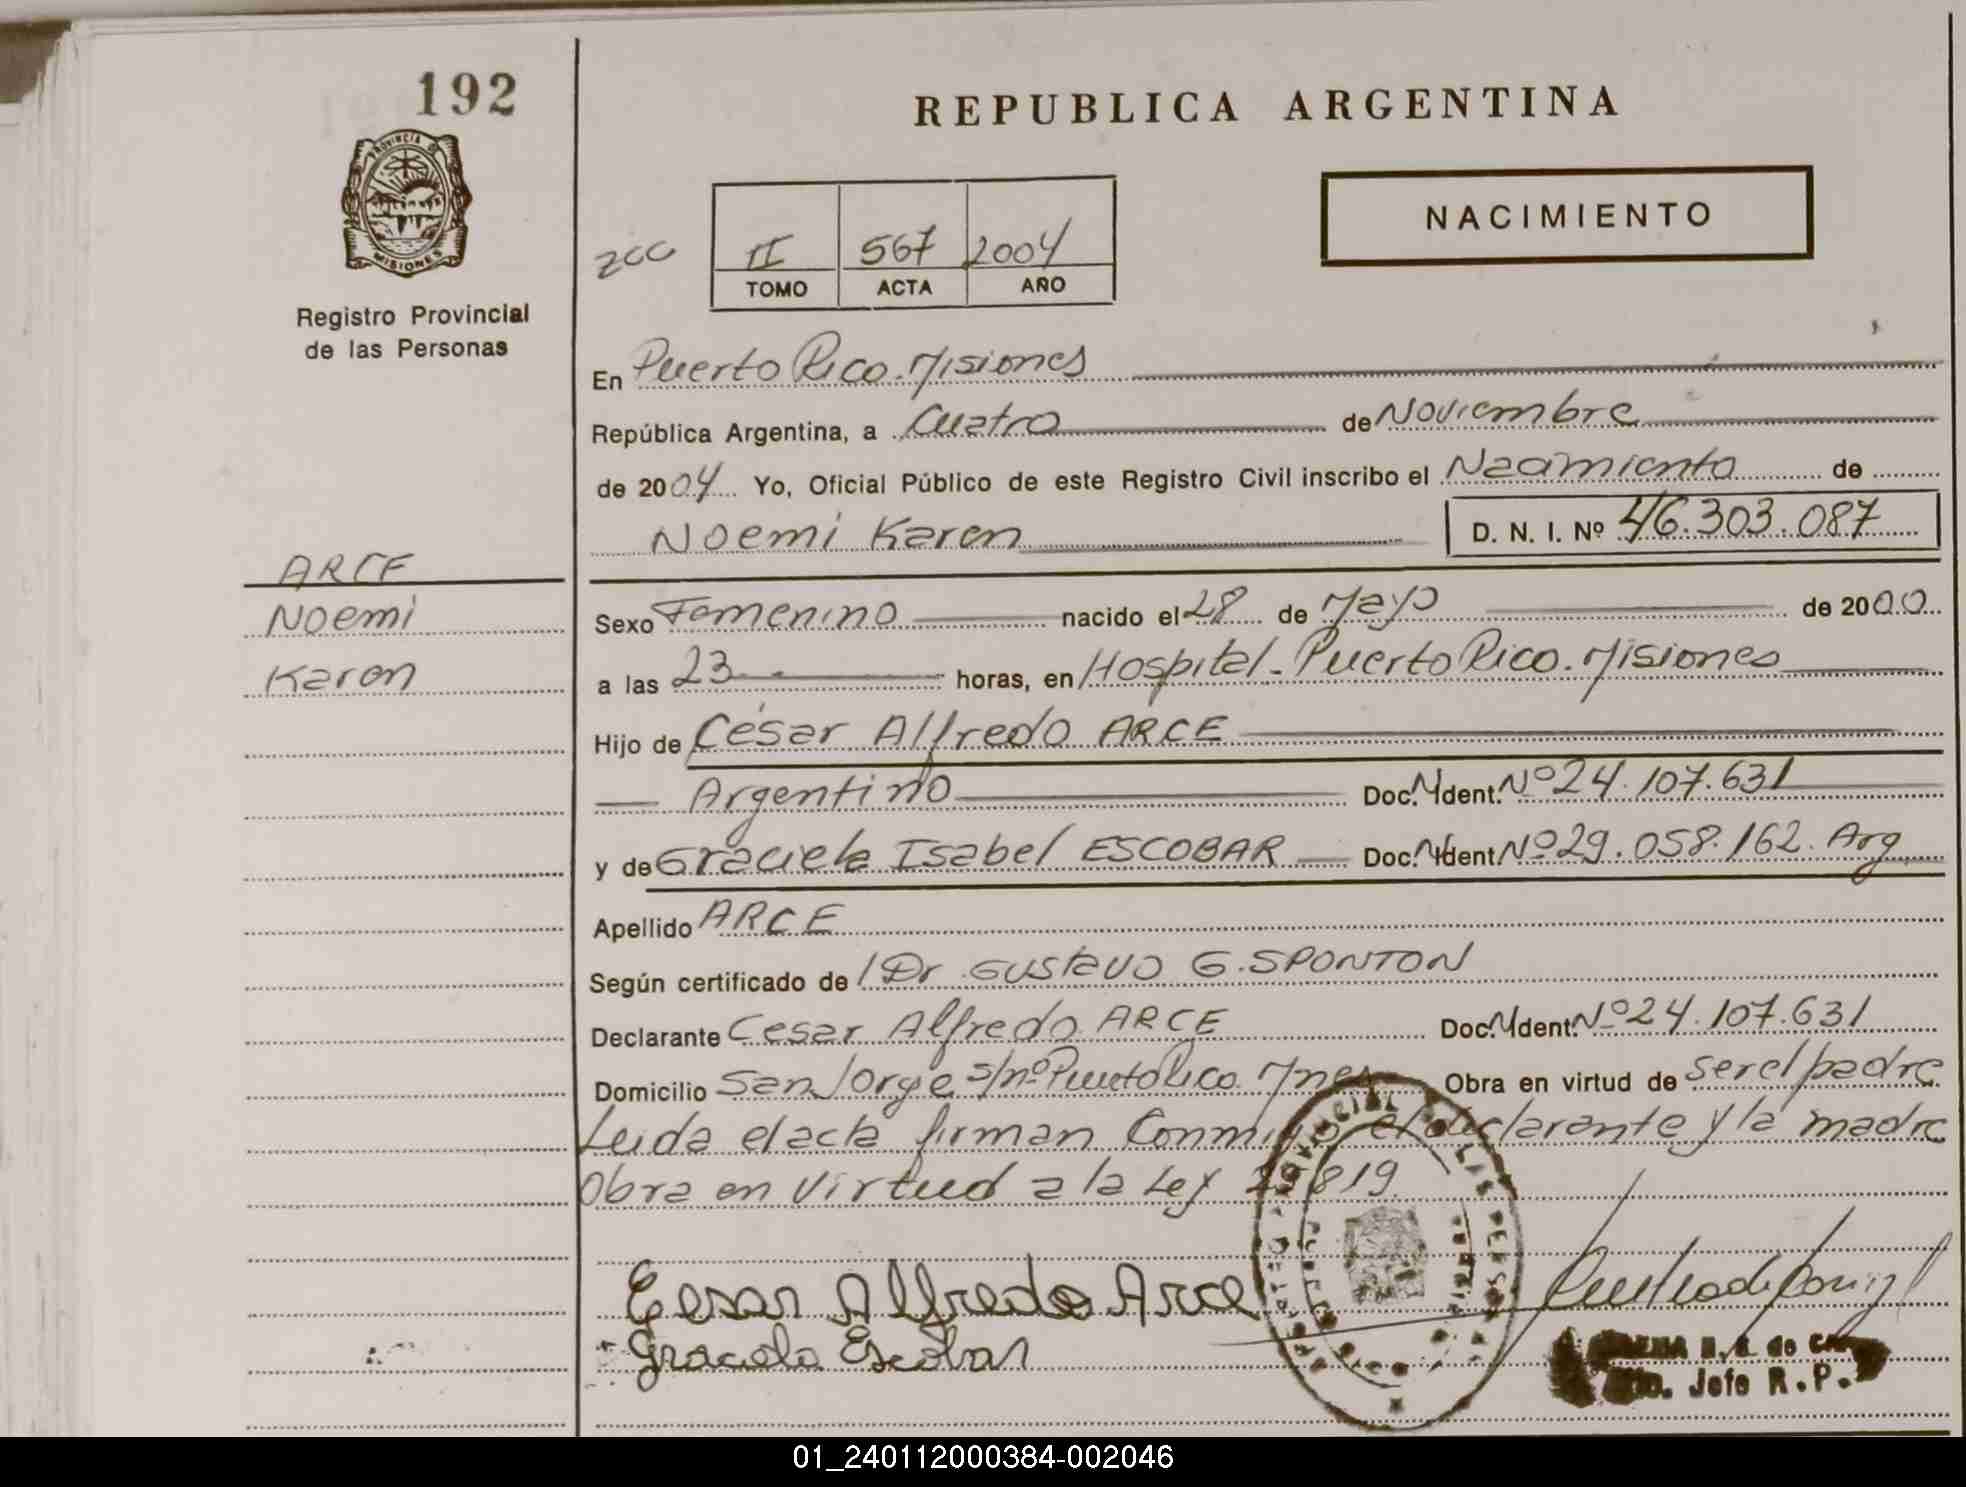 192
REPUBLICA ARGENTINA
PROVINCIA DE
MISIONES
Registro Provincial
de las Personas
NACIMIENTO
200
II 567 2004
TOMO ACTA AÑO
En Puerto Rico. Misiones
República Argentina, a Cuatro de Noviembre
de 2004 Yo, Oficial Público de este Registro Civil inscribo el Nacimiento de
Noemi Karen D. N. I. Nº 46.303.087
ARCE
Noemi
Karen
Sexo Femenino nacido el 28 de Mayo de 2000
a las 23 horas, en Hospital - Puerto Rico. Misiones
Hijo de César Alfredo ARCE
Argentino Doc. Ident. Nº 24.107.631
y de Graciela Isabel ESCOBAR Doc. Ident Nº 29.058.162. Arg
Apellido ARCE
Según certificado de Dr. Gustavo G. SPONTON
Declarante Cesar Alfredo ARCE Doc. Ident. Nº 24.107.631
Domicilio San Jorge s/nº Puerto Rico. Mnes Obra en virtud de ser el padre
Leida el acta firman Conmigo el declarante y la madre
Obra en virtud a la Ley 25819.
Cesar Alfredo Arce
Graciela Escobar
Jefe R.P.
01_240112000384-002046